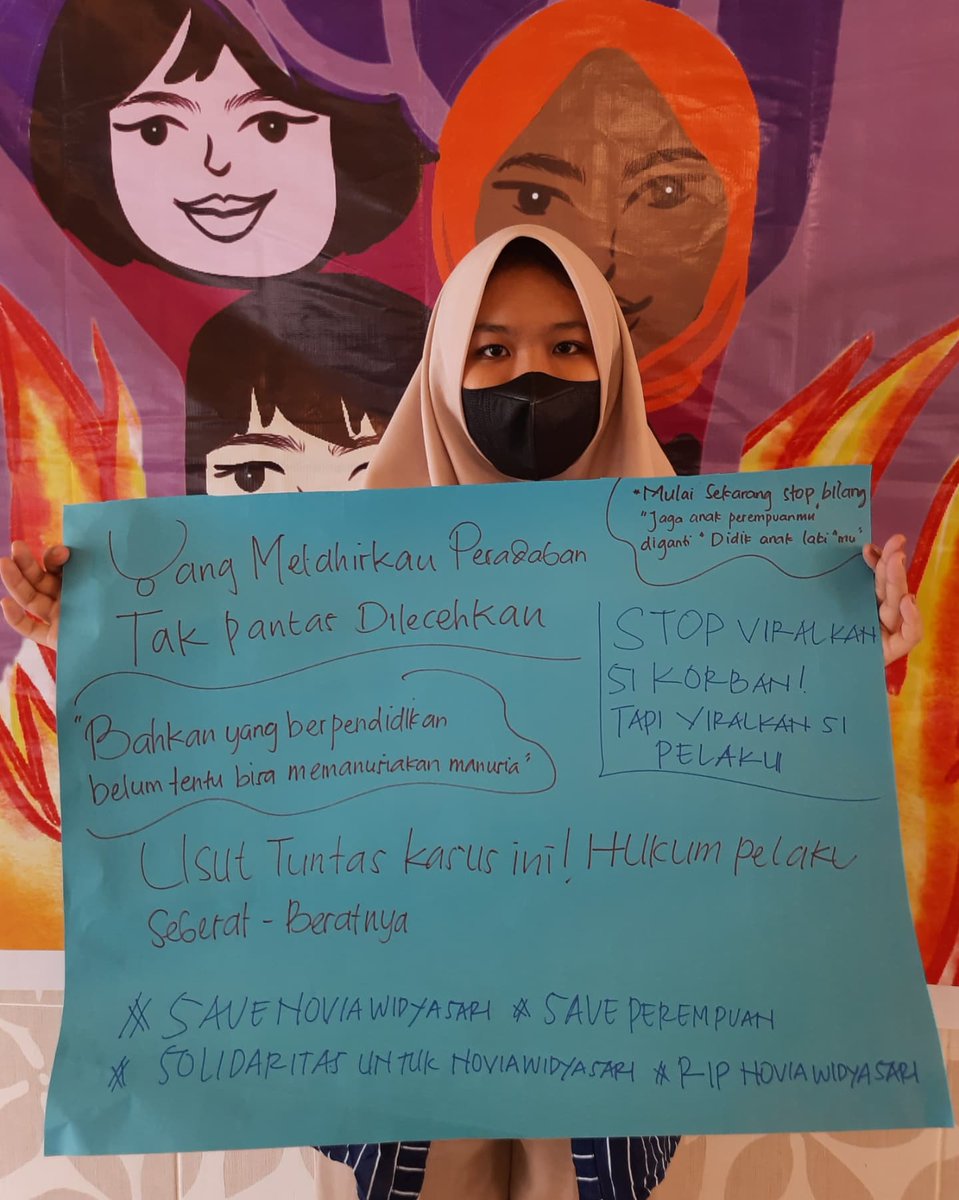 Yang Melahirkan Peradaban
Tak pantas Dilecehkan
"Mulai Sekarang stop bilang
"Jaga anak perempuanmu"
diganti "Didik anak laki"mu"
STOP VIRALKAN
SI KORBAN!
TAPI VIRALKAN SI
PELAKU
"Bahkan yang berpendidikan
belum tentu bisa memanusiakan manusia"
Usut Tuntas kasus ini! Hukum pelaku
Seberat - Beratnya
# SAVE NOVIA WIDYASARI # SAVE PEREMPUAN
# SOLIDARITAS UNTUK NOVIAWIDYASARI # RIP NOVIA WIDYASARI